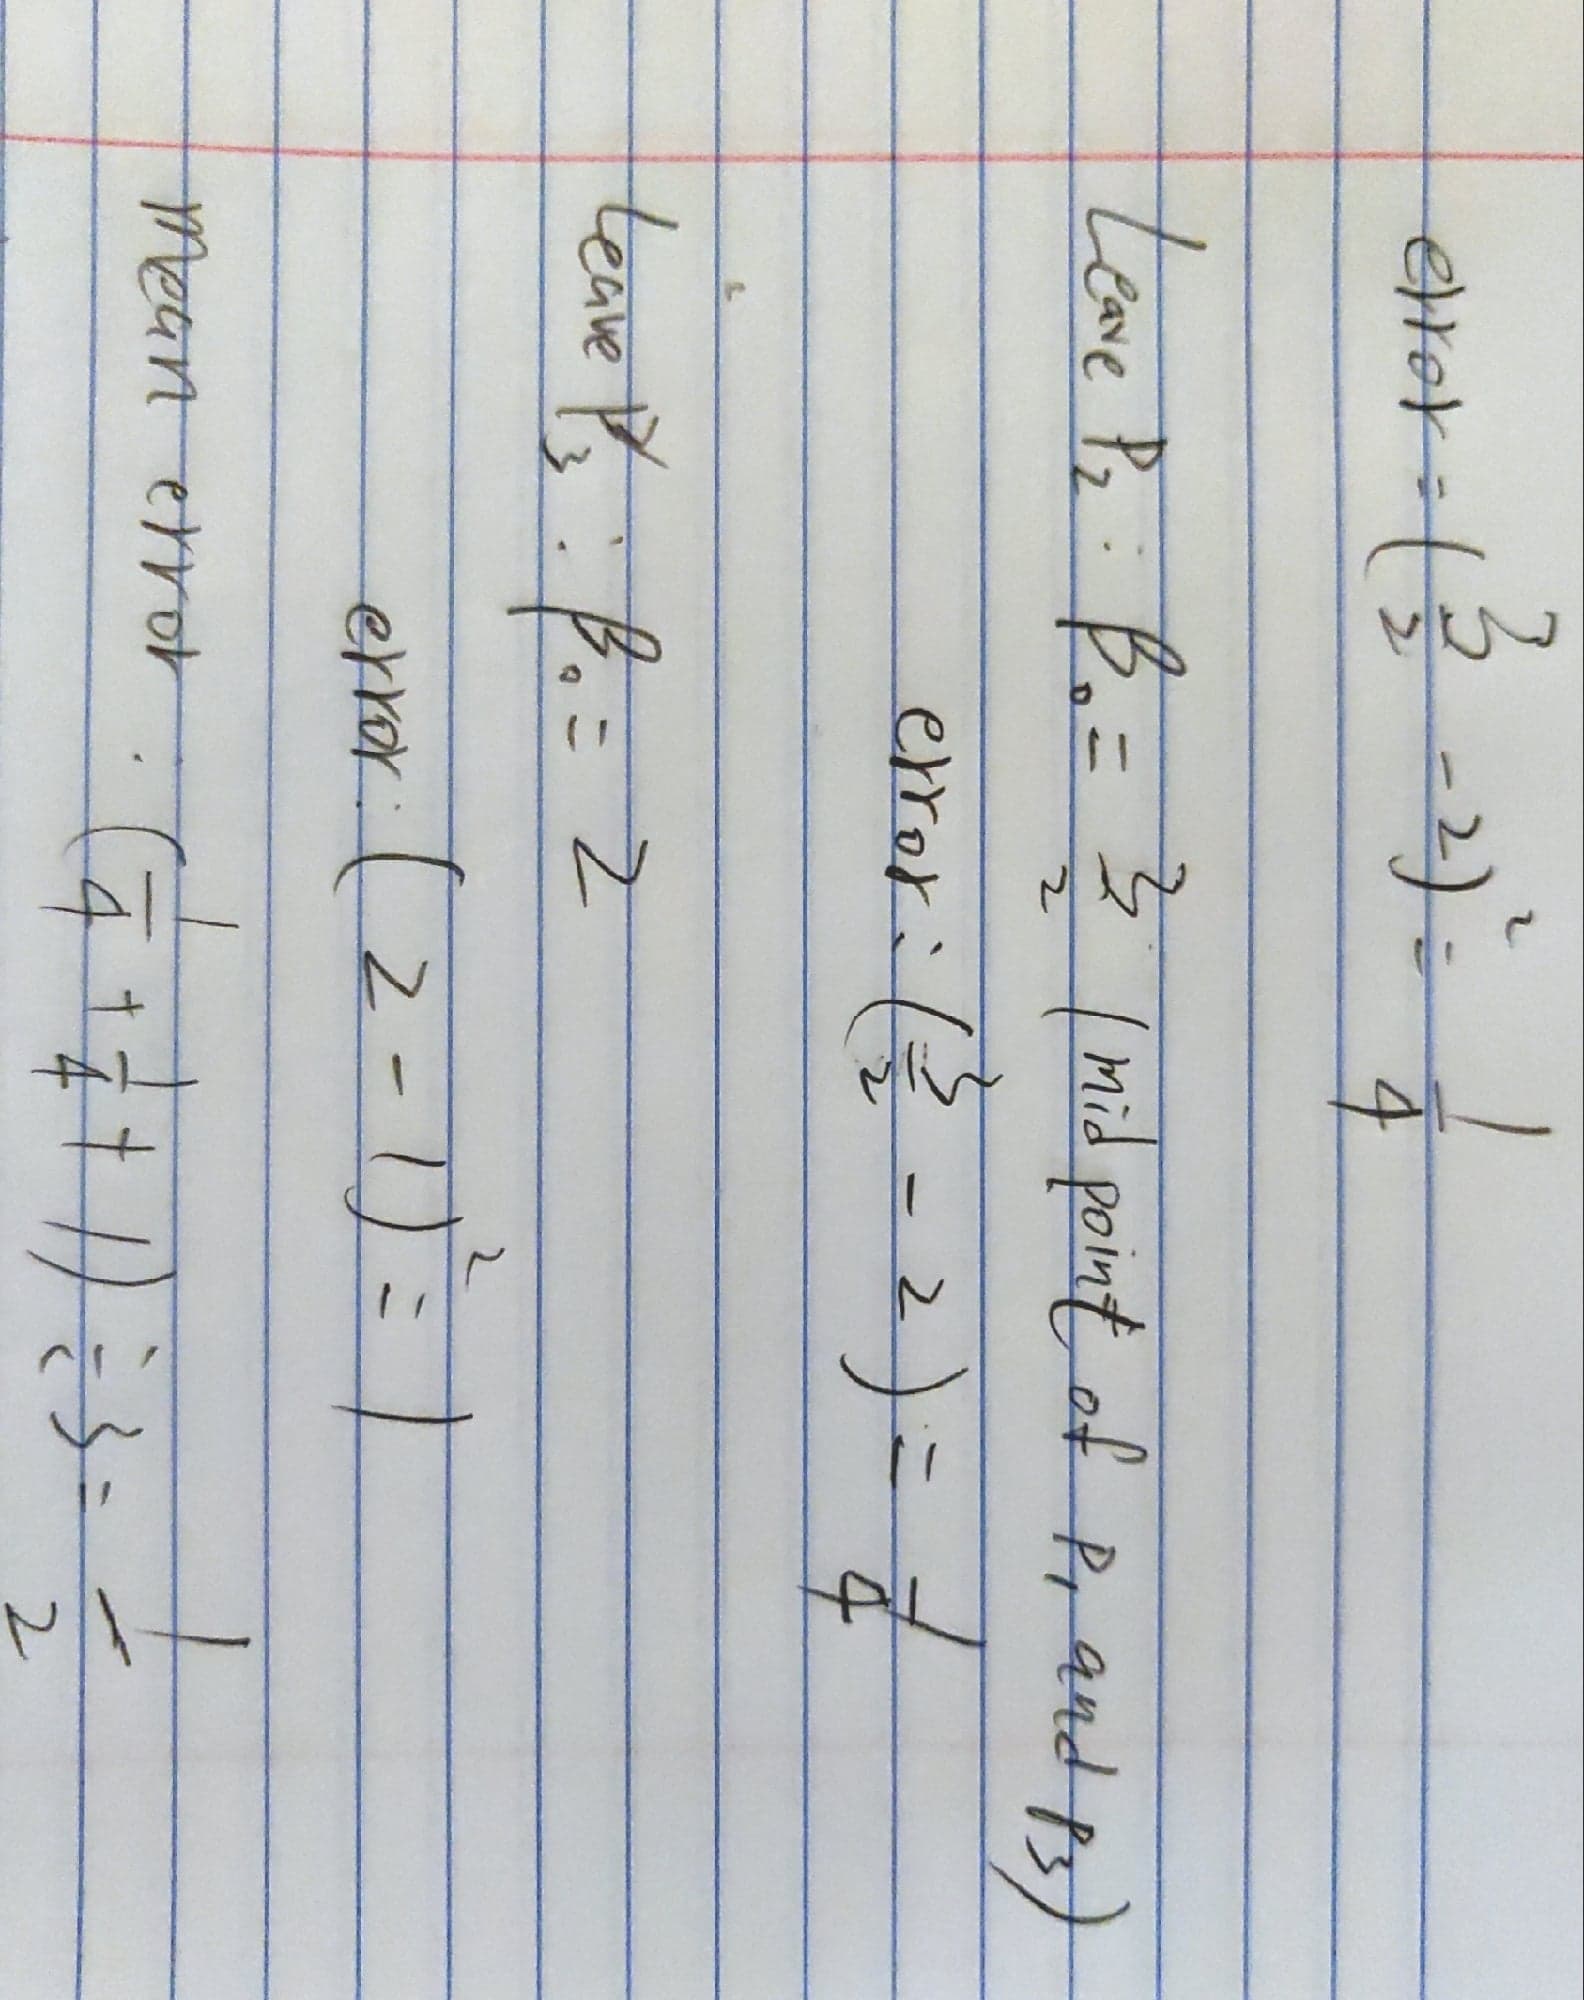 error = (3/2 - 2)² = 1/4
Leave P₂ : β₀ = 3/2 (mid point of P₁ and P₃)
error : (3/2 - 2) = 1/4
Leave P₃ : β₀ = 2
error : (2 - 1)² = 1
Mean error : (1/4 + 1/4 + 1) ÷ 3 = 1/2